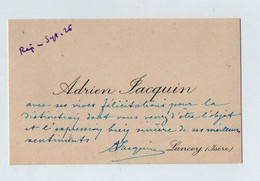 Rép - Sept. 26
Adrien Jacquin
avec ses vives félicitations pour la
distinction dont vous venez d'être l'objet
et l'expression bien sincère de ses meilleurs
sentiments
Jacquin
Lancey (Isère)